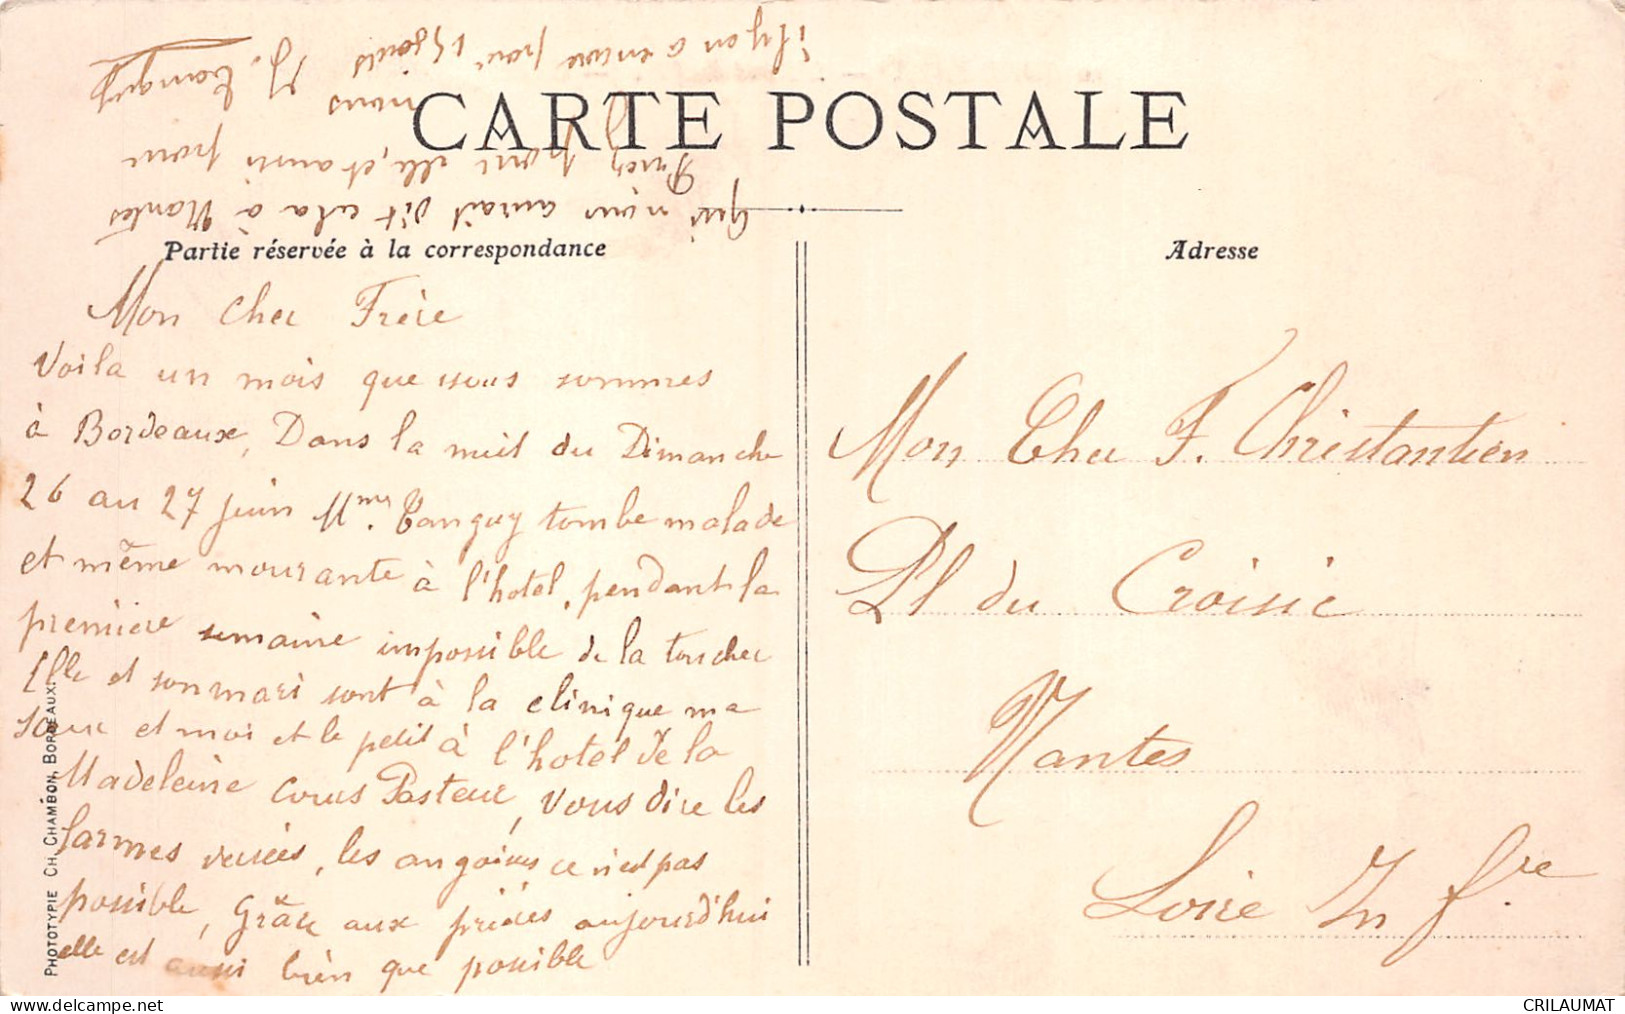 CARTE POSTALE
Partie réservée à la correspondance
Adresse
Mon cher Frère
Voila un mois que nous sommes
à Bordeaux, Dans la nuit du Dimanche
26 au 27 juin Mme. Tanguy tombe malade
et même mourante à l'hotel, pendant la
première semaine impossible de la toucher
Elle et son mari sont à la clinique ma
sœur et moi et le petit à l'hotel de la
Madeleine Cours Pasteur, vous dire les
larmes versées, les angoises ce n'est pas
possible, Grâce aux prières aujourd'hui
elle est aussi bien que possible
Qui nous aurait dit cela à Nantes
Priez pour elle, et aussi pour
nous J. Tanguy
il y en a encore pour 15 jours
Mon Cher F. Christantien
Pl du Croisic
Nantes
Loire Infre
PHOTOTYPIE CH. CHAMBON, BORDEAUX.
CRILAUMAT